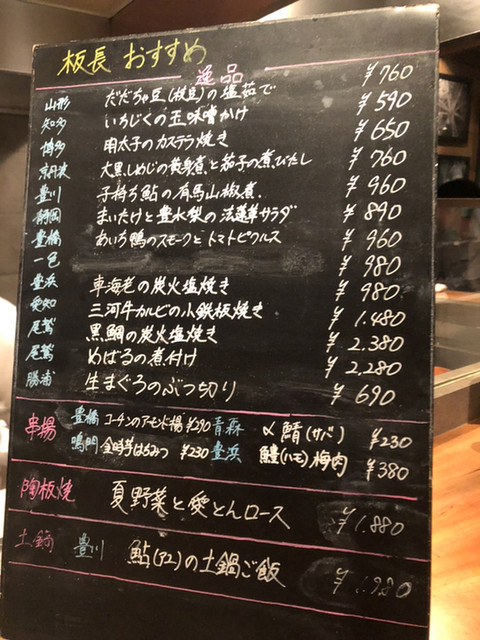 板長 おすすめ
逸品
山形 だだちゃ豆(枝豆)の塩茹で ¥760
知多 いちじくの玉味噌かけ ¥590
博多 明太子のカステラ焼き ¥650
京丹波 大黒しめじの黄身煮と茄子の煮びたし ¥760
豊川 子持ち鮎の有馬山椒煮 ¥960
静岡 まいたけと豊水梨の法蓮草サラダ ¥890
豊橋 あいち鴨のスモークとトマトピクルス ¥960
一色 ¥980
豊浜 車海老の炭火塩焼き ¥980
愛知 三河牛カルビの小鉄板焼き ¥1.480
尾鷲 黒鯛の炭火塩焼き ¥2.380
尾鷲 めばるの煮付け ¥2,280
勝浦 生まぐろのぶつ切り ¥690
串揚 豊橋 コーチンのアーモンド揚 ¥290 青森 〆鯖(サバ) ¥230
鳴門 金時芋はちみつ ¥230 豊浜 鱧(ハモ)梅肉 ¥380
陶板焼 夏野菜と愛とんロース ¥1.880
土鍋 豊川 鮎(アユ)の土鍋ご飯 ¥1.980